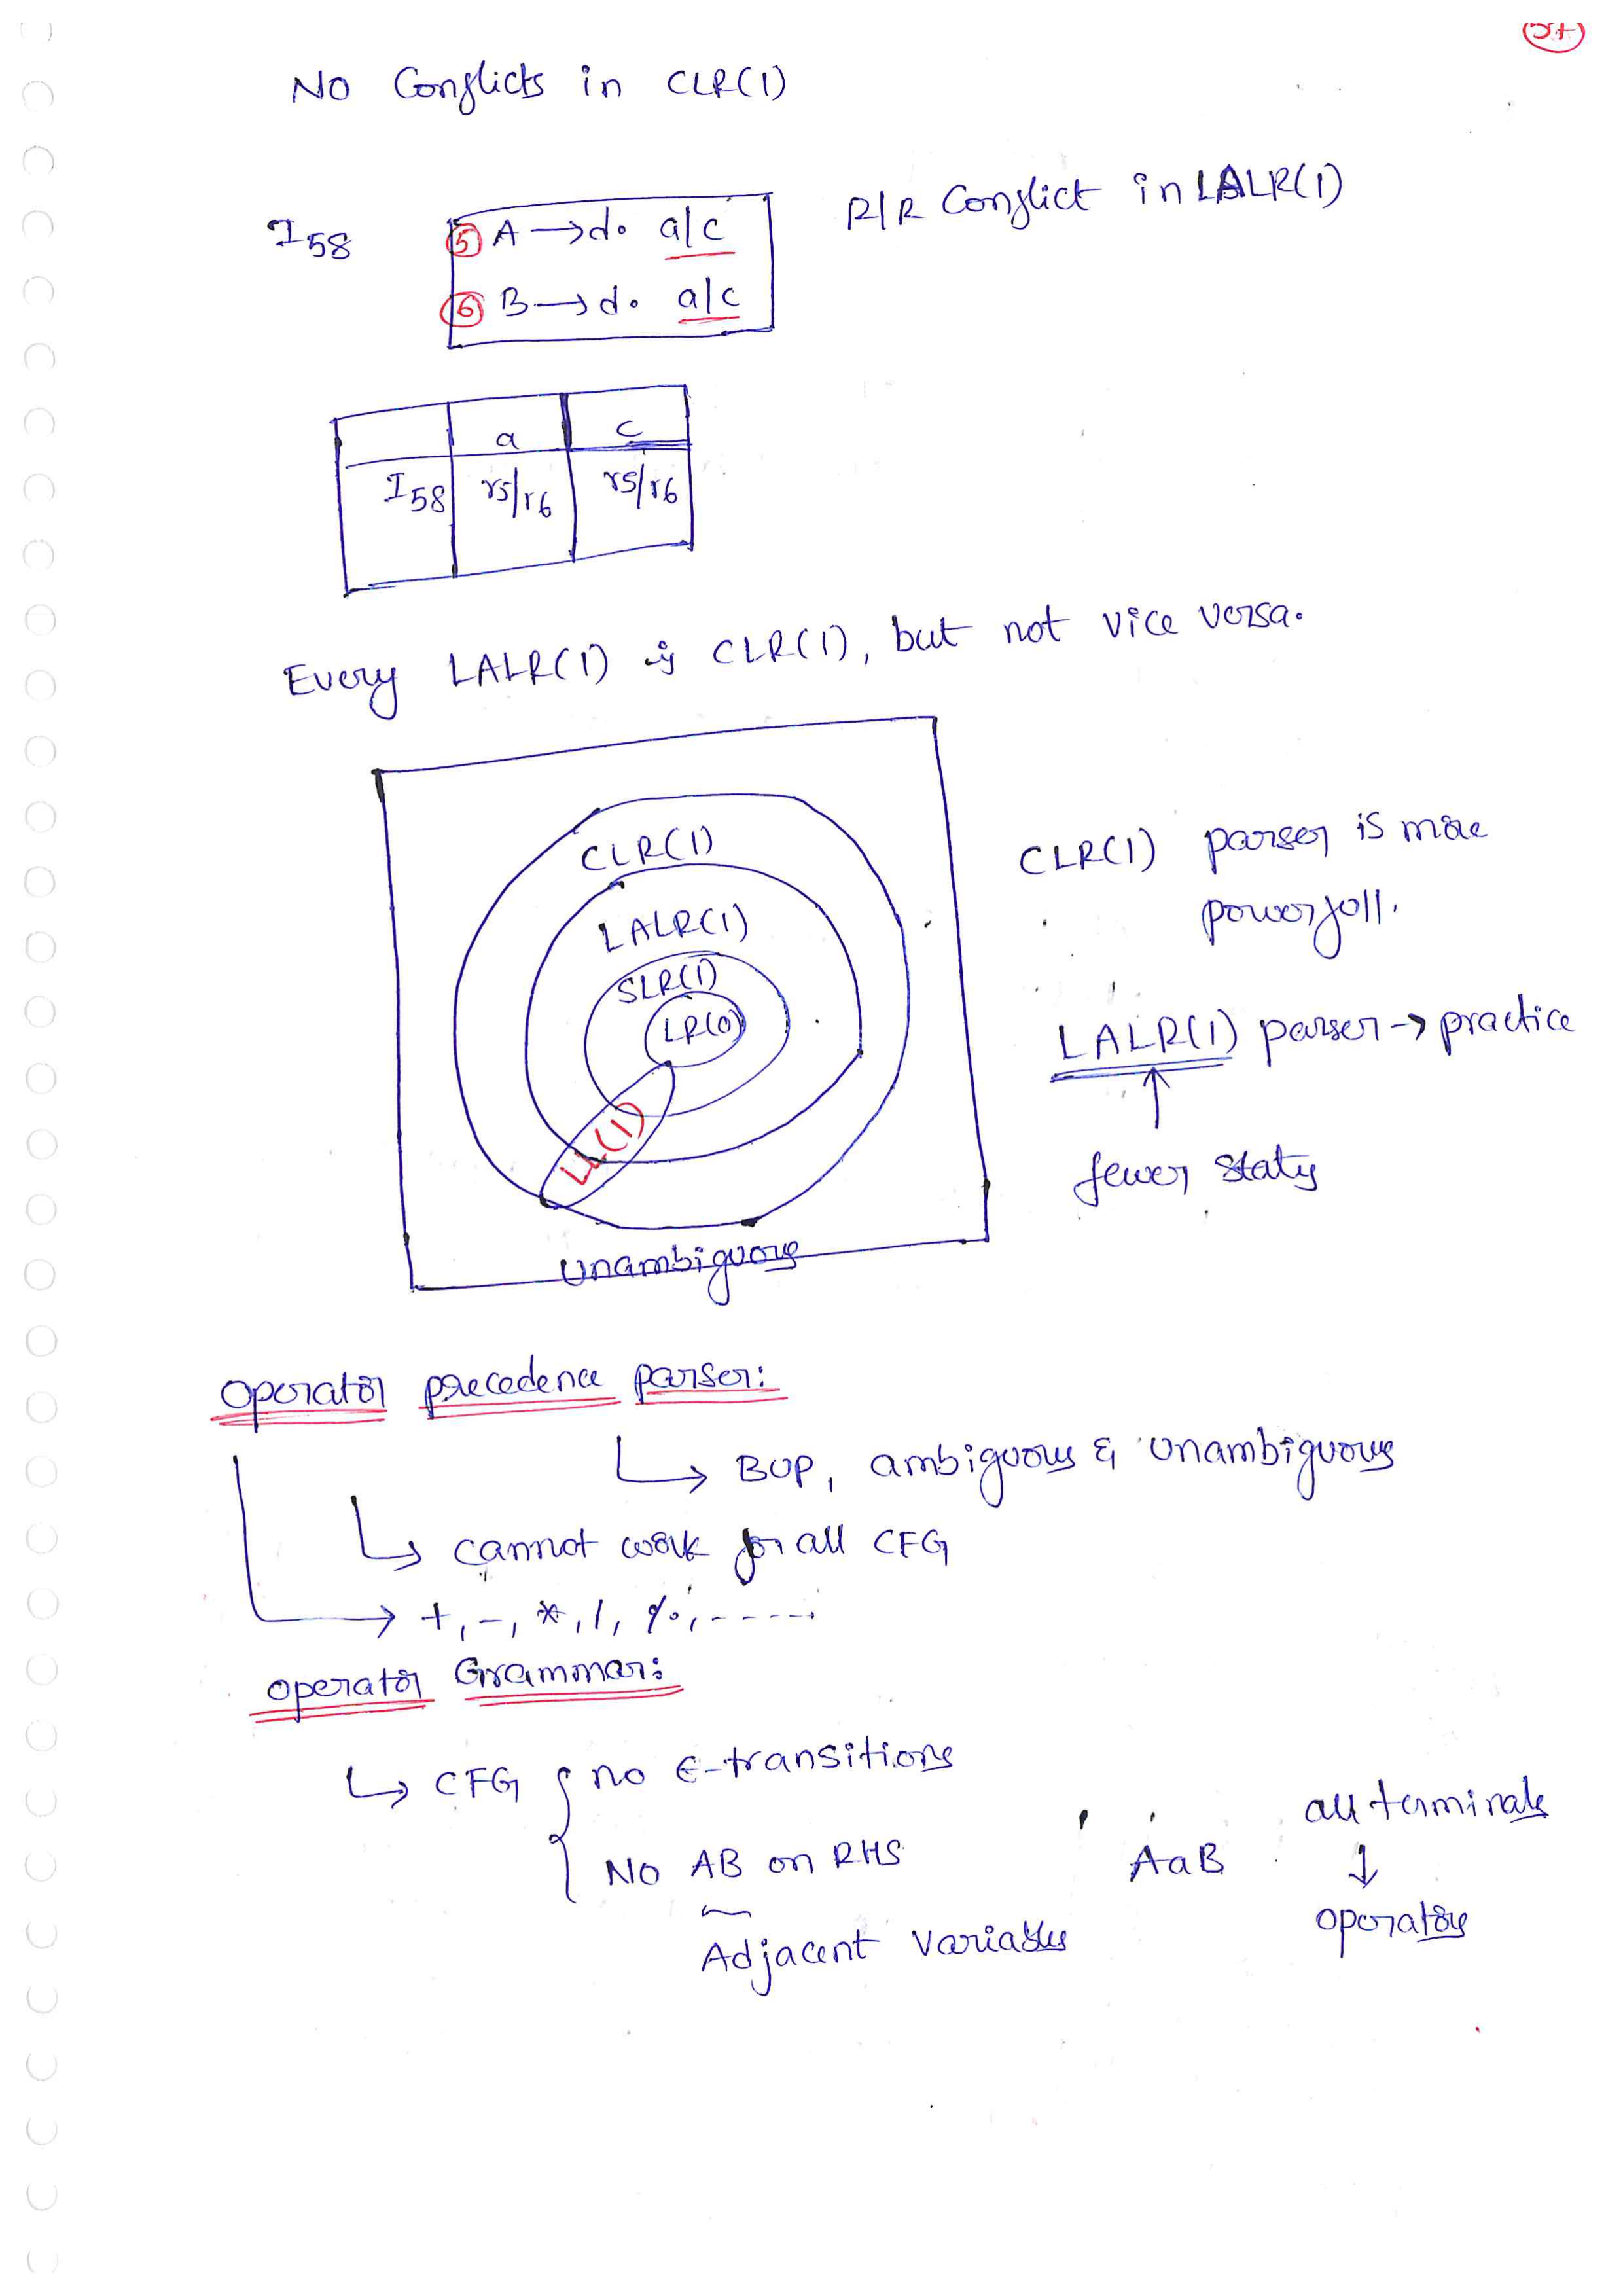 No Conflicts in CLR(1)
I58 ⑤ A → d. a/c R/R Conflict in LALR(1)
⑥ B → d. a/c
a c
I58 r5/r6 r5/r6
Every LALR(1) is CLR(1), but not vice versa.
CLR(1)
LALR(1)
SLR(1)
LR(0)
LL(1)
Unambiguous
CLR(1) parser is more
powerfull.
LALR(1) parser → practice
↑
fewer states
Operator precedence parser:
↳ BUP, ambiguous & Unambiguous
↳ cannot work for all CFG
→ +, -, *, /, %, -----
operator Grammar:
↳ CFG { no ϵ-transitions
No AB on RHS AaB
Adjacent Variables
all terminals
↓
operators